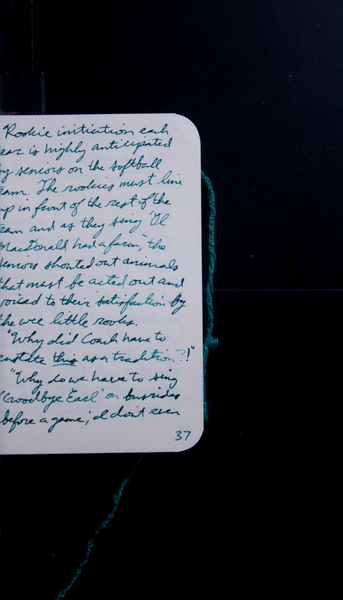 Rookie initiation each
ear is highly anticipated
by seniors on the softball
eam. The rookies must line
up in front of the rest of the
eam and as they sing 'Ol
MacDonald had a farm,' the
seniors shouted out animals
that must be acted out and
voiced to their satisfaction by
the wee little rooks.
"Why did Coach have to
this as a tradition?!"
"Why do we have to sing
'Goodbye Earl' on bus rides
before a game; I don't even
37